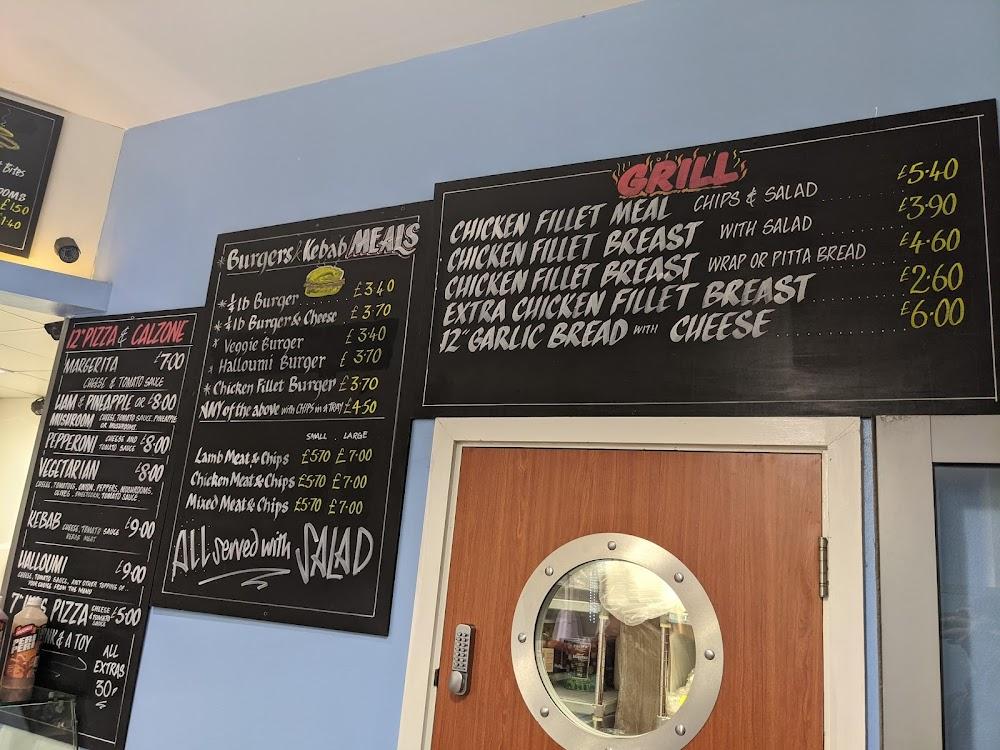 Bites
£1.50
1.40
12" PIZZA & CALZONE
MARGERITA £7.00
CHEESE & TOMATO SAUCE
HAM & PINEAPPLE OR £8.00
MUSHROOM CHEESE, TOMATO SAUCE, PINEAPPLE
OR MUSHROOMS.
PEPPERONI CHEESE AND TOMATO SAUCE £8.00
VEGETARIAN £8.00
CHEESE, TOMATOES, ONION, PEPPERS, MUSHROOMS,
OLIVES, SWEETCORN, TOMATO SAUCE.
KEBAB CHEESE, TOMATO SAUCE £9.00
KEBAB MEAT
HALLOUMI £9.00
CHEESE, TOMATO SAUCE, ANY OTHER TOPPING OF
YOUR CHOICE FROM THE MENU
PIZZA CHEESE & TOMATO SAUCE £5.00
& A TOY
ALL
EXTRAS
30p
Burgers/Kebab MEALS
*¼lb Burger £3.40
*¼lb Burger & Cheese £3.70
* Veggie Burger £3.40
* Halloumi Burger £3.70
*Chicken Fillet Burger £3.70
ANY of the above with CHIPS in a TRAY £4.50
SMALL . LARGE
Lamb Meat & Chips £5.70 £7.00
Chicken Meat & Chips £5.70 £7.00
Mixed Meat & Chips £5.70 £7.00
ALL served with SALAD
GRILL
CHICKEN FILLET MEAL CHIPS & SALAD £5.40
CHICKEN FILLET BREAST WITH SALAD £3.90
CHICKEN FILLET BREAST WRAP OR PITTA BREAD £4.60
EXTRA CHICKEN FILLET BREAST £2.60
12" GARLIC BREAD WITH CHEESE £6.00